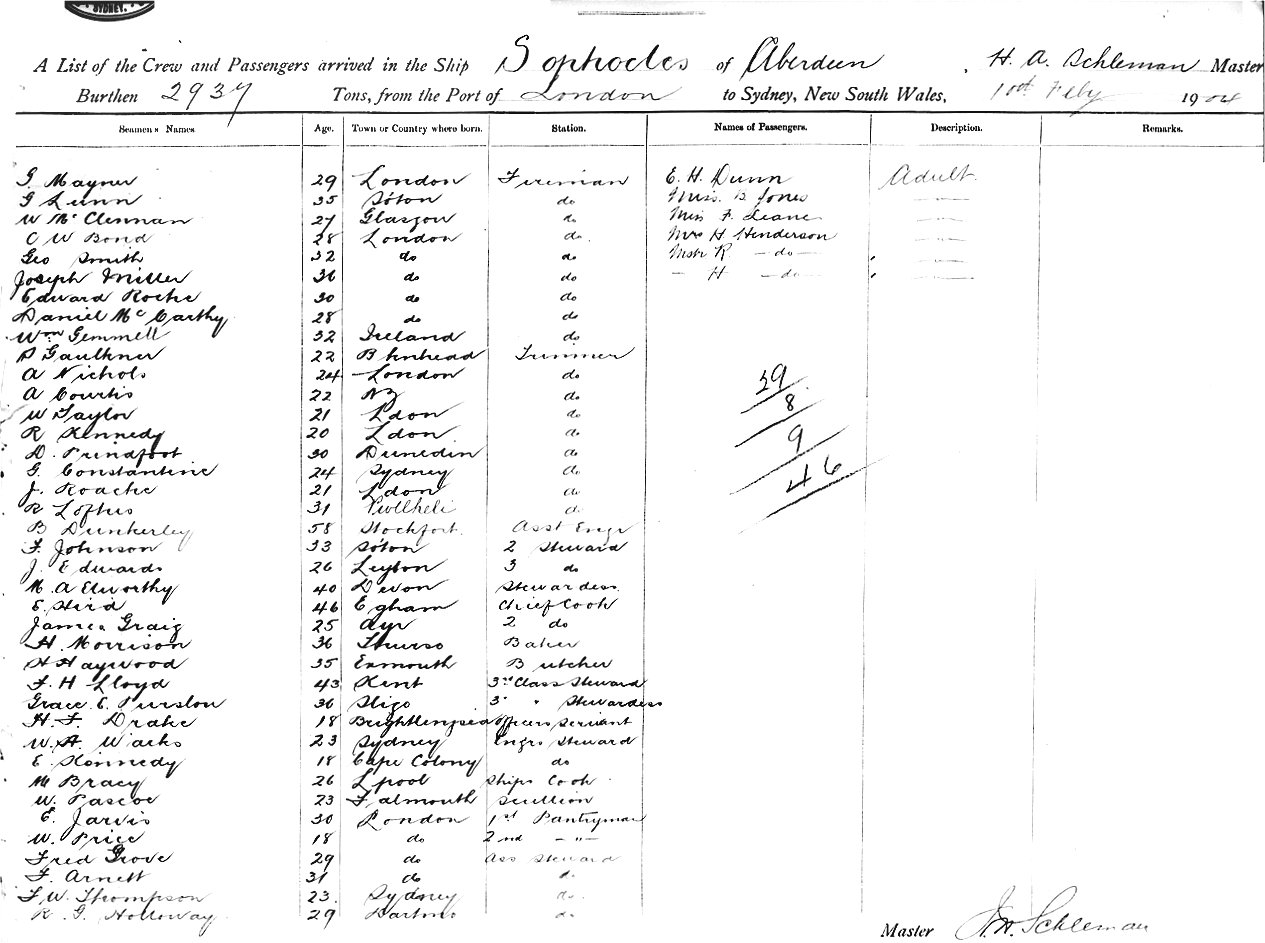 SYDNEY.
A List of the Crew and Passengers arrived in the Ship Sophocles of Aberdeen, H. A. Schleman Master
Burthen 2937 Tons, from the Port of London to Sydney, New South Wales, 10th Feby 1904
Seamens Names. Age. Town or Country where born. Station. Names of Passengers. Description. Remarks.
G Mayner 29 London Fireman E. H. Dunn Adult
G Lunn 35 So'ton do Miss. B Jones —〃—
W McClennan 27 Glasgow do Miss F. Leane —〃—
C W Bond 28 London do. Mrs H Henderson —〃—
Geo Smith 32 do do Mstr R. —do— —〃—
Joseph Miller 36 do do — H —do— —〃—
Edward Roche 30 do do
Daniel McCarthy 28 do do
Wm Gemmell 32 Ireland do
D Gaulkner 22 B'kenhead Trimmer
A Nichols 24 London do 29
A Courtis 22 NZ do 8
W Taylor 21 Ldon do
R Kennedy 20 Ldon do 9
D. Prindfoot 30 Dunedin do
G. Constantine 24 Sydney do 46
J. Roache 21 Ldon do
R Loftus 31 Pwllheli do
B Dunkerley 58 Stockport. Asst Engr
F. Johnson 33 So'ton 2 Steward
J. Edwards 26 Leyton 3 do
M. A Elworthy 40 Devon Stewardess
E. Hird 46 Egham Chief Cook
James Graig 25 Ayr 2 do
H. Morrison 36 Thurso Baker
H Haywood 35 Exmouth Butcher
F. H Lloyd 43 Kent 3rd Class Steward
Grace E. Purslow 36 Sligo 3 " Stewardess
H. F. Drake 18 Brightlingsea Officers Servant
W. A. Warks 23 Sydney Engrs Steward
E. Kennedy 18 Cape Colony do
M Bracy 26 L'pool Ships Cook
W. Pascoe 23 Falmouth Scullion
E. Jarvis 30 London 1st Pantryman
W. Price 18 do 2nd —〃—
Fred Grove 29 do Ass Steward
F. Arnett 31 do do
F. W. Thompson 23. Sydney do
R. G. Holloway 29 do
Master H. A. Schleman